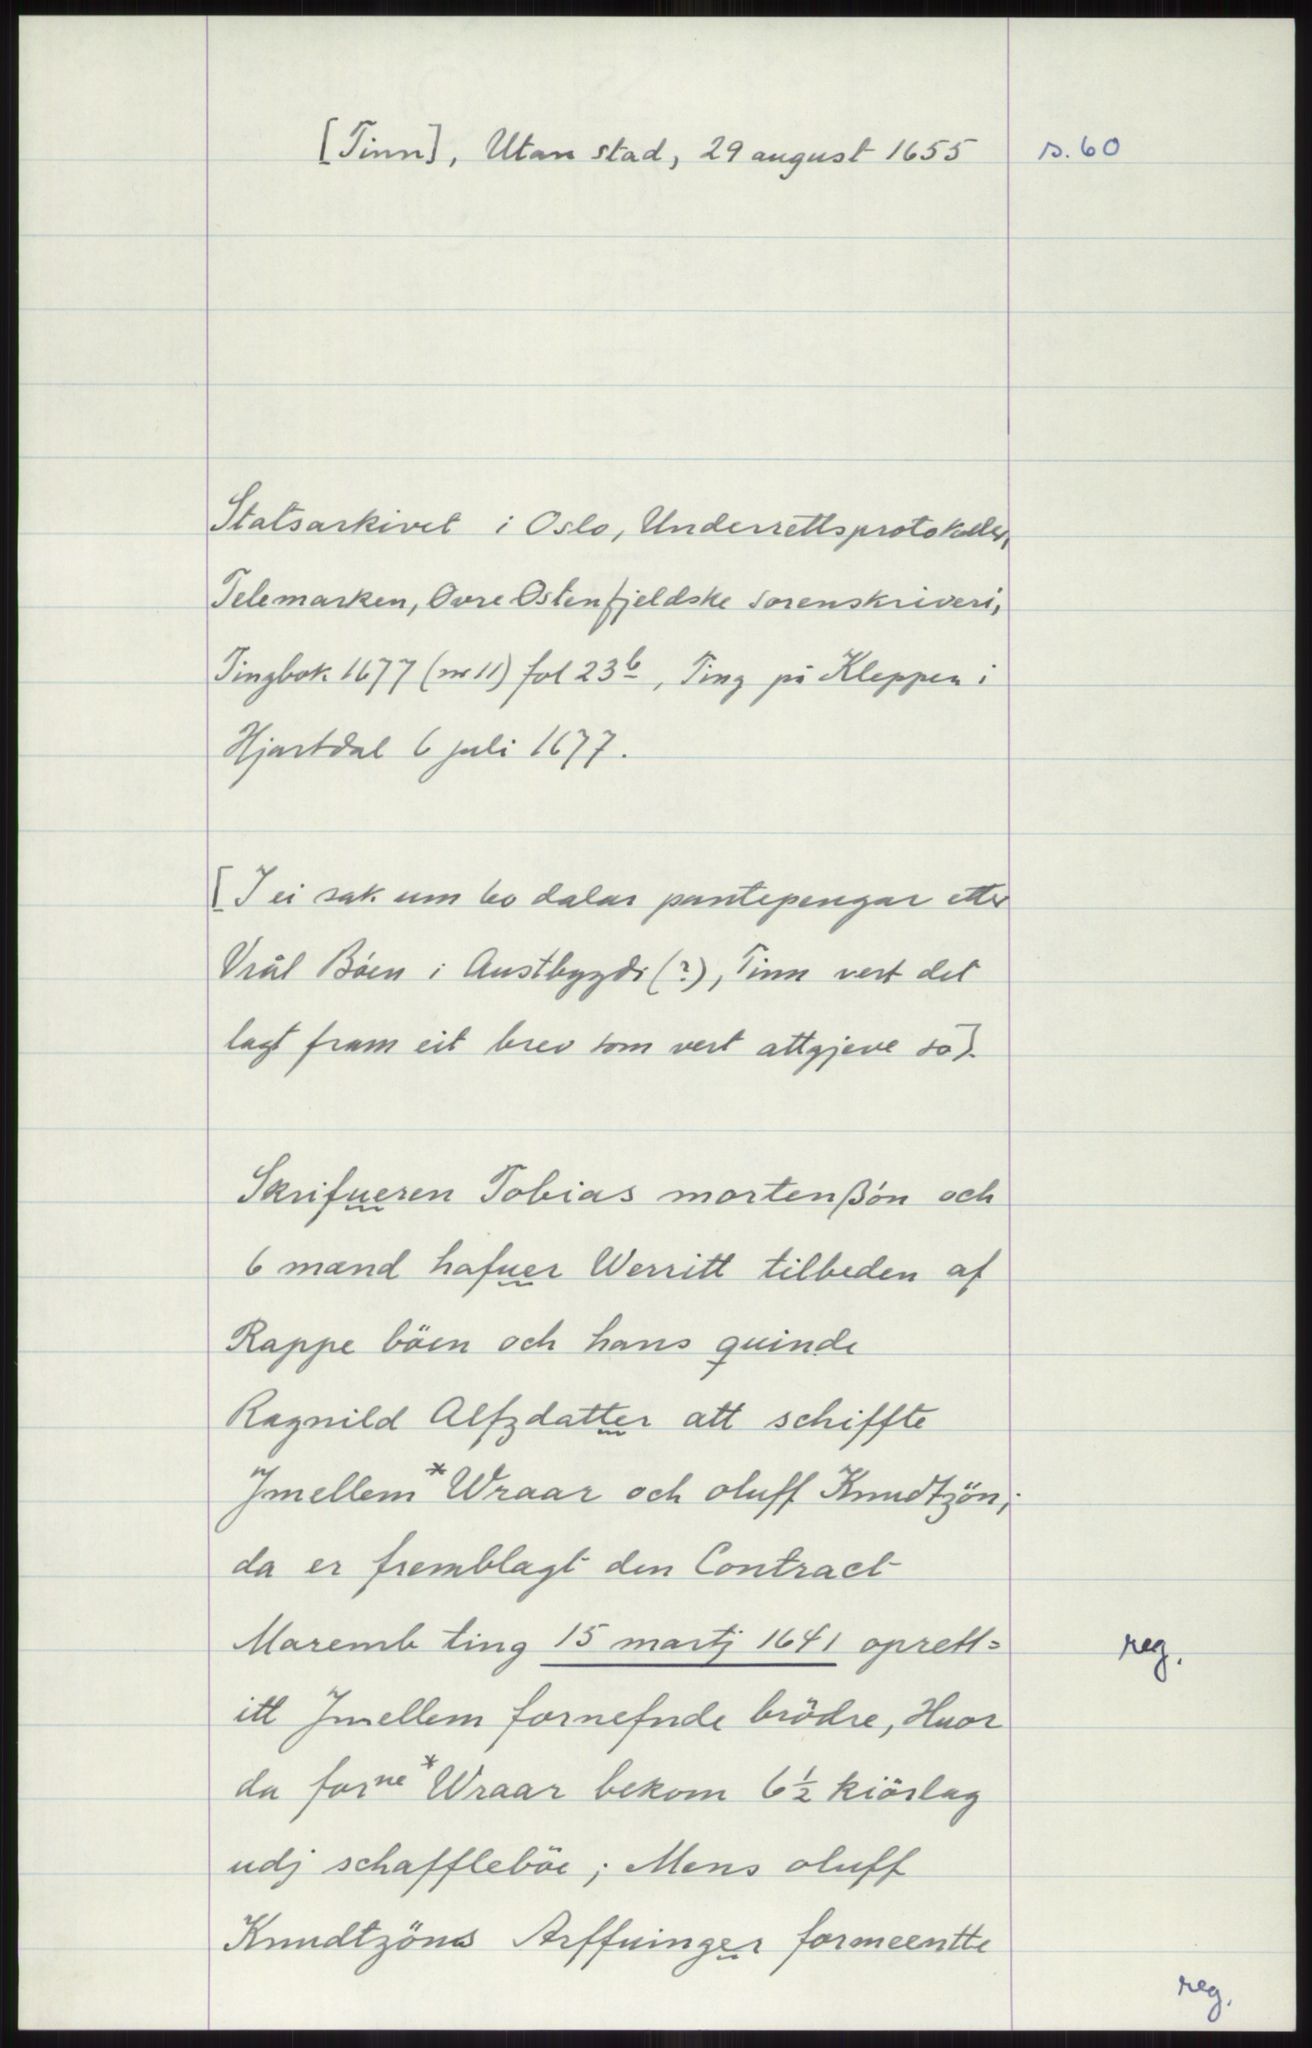 [Tinn], Utan stad, 29 august 1655
s. 60
Statsarkivet i Oslo, Underrettsprotokoller,
Telemarken, Øvre Østenfjeldske sorenskriveri,
Tingbok 1677 (nr 11) fol 23b, Ting på Kleppen i
Hjartdal 6 juli 1677.
[I ei sak um 60 dalar pantepengar etter
Vrål Bøen i Austbygdi (?), Tinn vert det
lagt fram eit brev som vert attgjeve so].
Skrifueren Tobias mortenßøn och
6 mænd hafuer Werritt tilbeden af
Rappe böen och hans quinde
Ragnild Alfzdatter att schiffte
Jmellem *Wraar och oluff Knudtzön;
da er fremblagt den Contract
Maremb ting 15 martj 1641 oprett=
itt Jmellem fornefnde brödre, Huor
da forne *Wraar bekom 6½ kiörlag
udj schaffleböe; Mens oluff
Knudtzöns Arffuinger formeentte
reg.
reg.